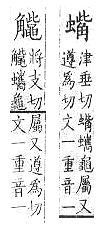 蟕
津垂切蟕蠵龜屬又
遵為切文一重音一
將支切
蠵龜
屬又遵為切
文一重音一